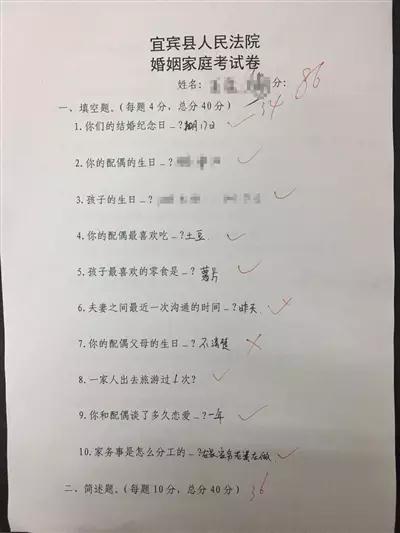 宜宾县人民法院
婚姻家庭考试卷
姓名: 分: 86
一、填空题、(每题4分,总分40分) 34
1.你们的结婚纪念日_?月17日
2.你的配偶的生日_?
3.孩子的生日_?
4.你的配偶最喜欢吃_?土豆
5.孩子最喜欢的零食是_?薯片
6.夫妻之间最近一次沟通的时间_?昨天
7.你的配偶父母的生日_?不清楚
8.一家人出去旅游过1次?
9.你和配偶谈了多久恋爱_?一年
10.家务事是怎么分工的_?在做
二、简述题、(每题10分,总分40分) 36